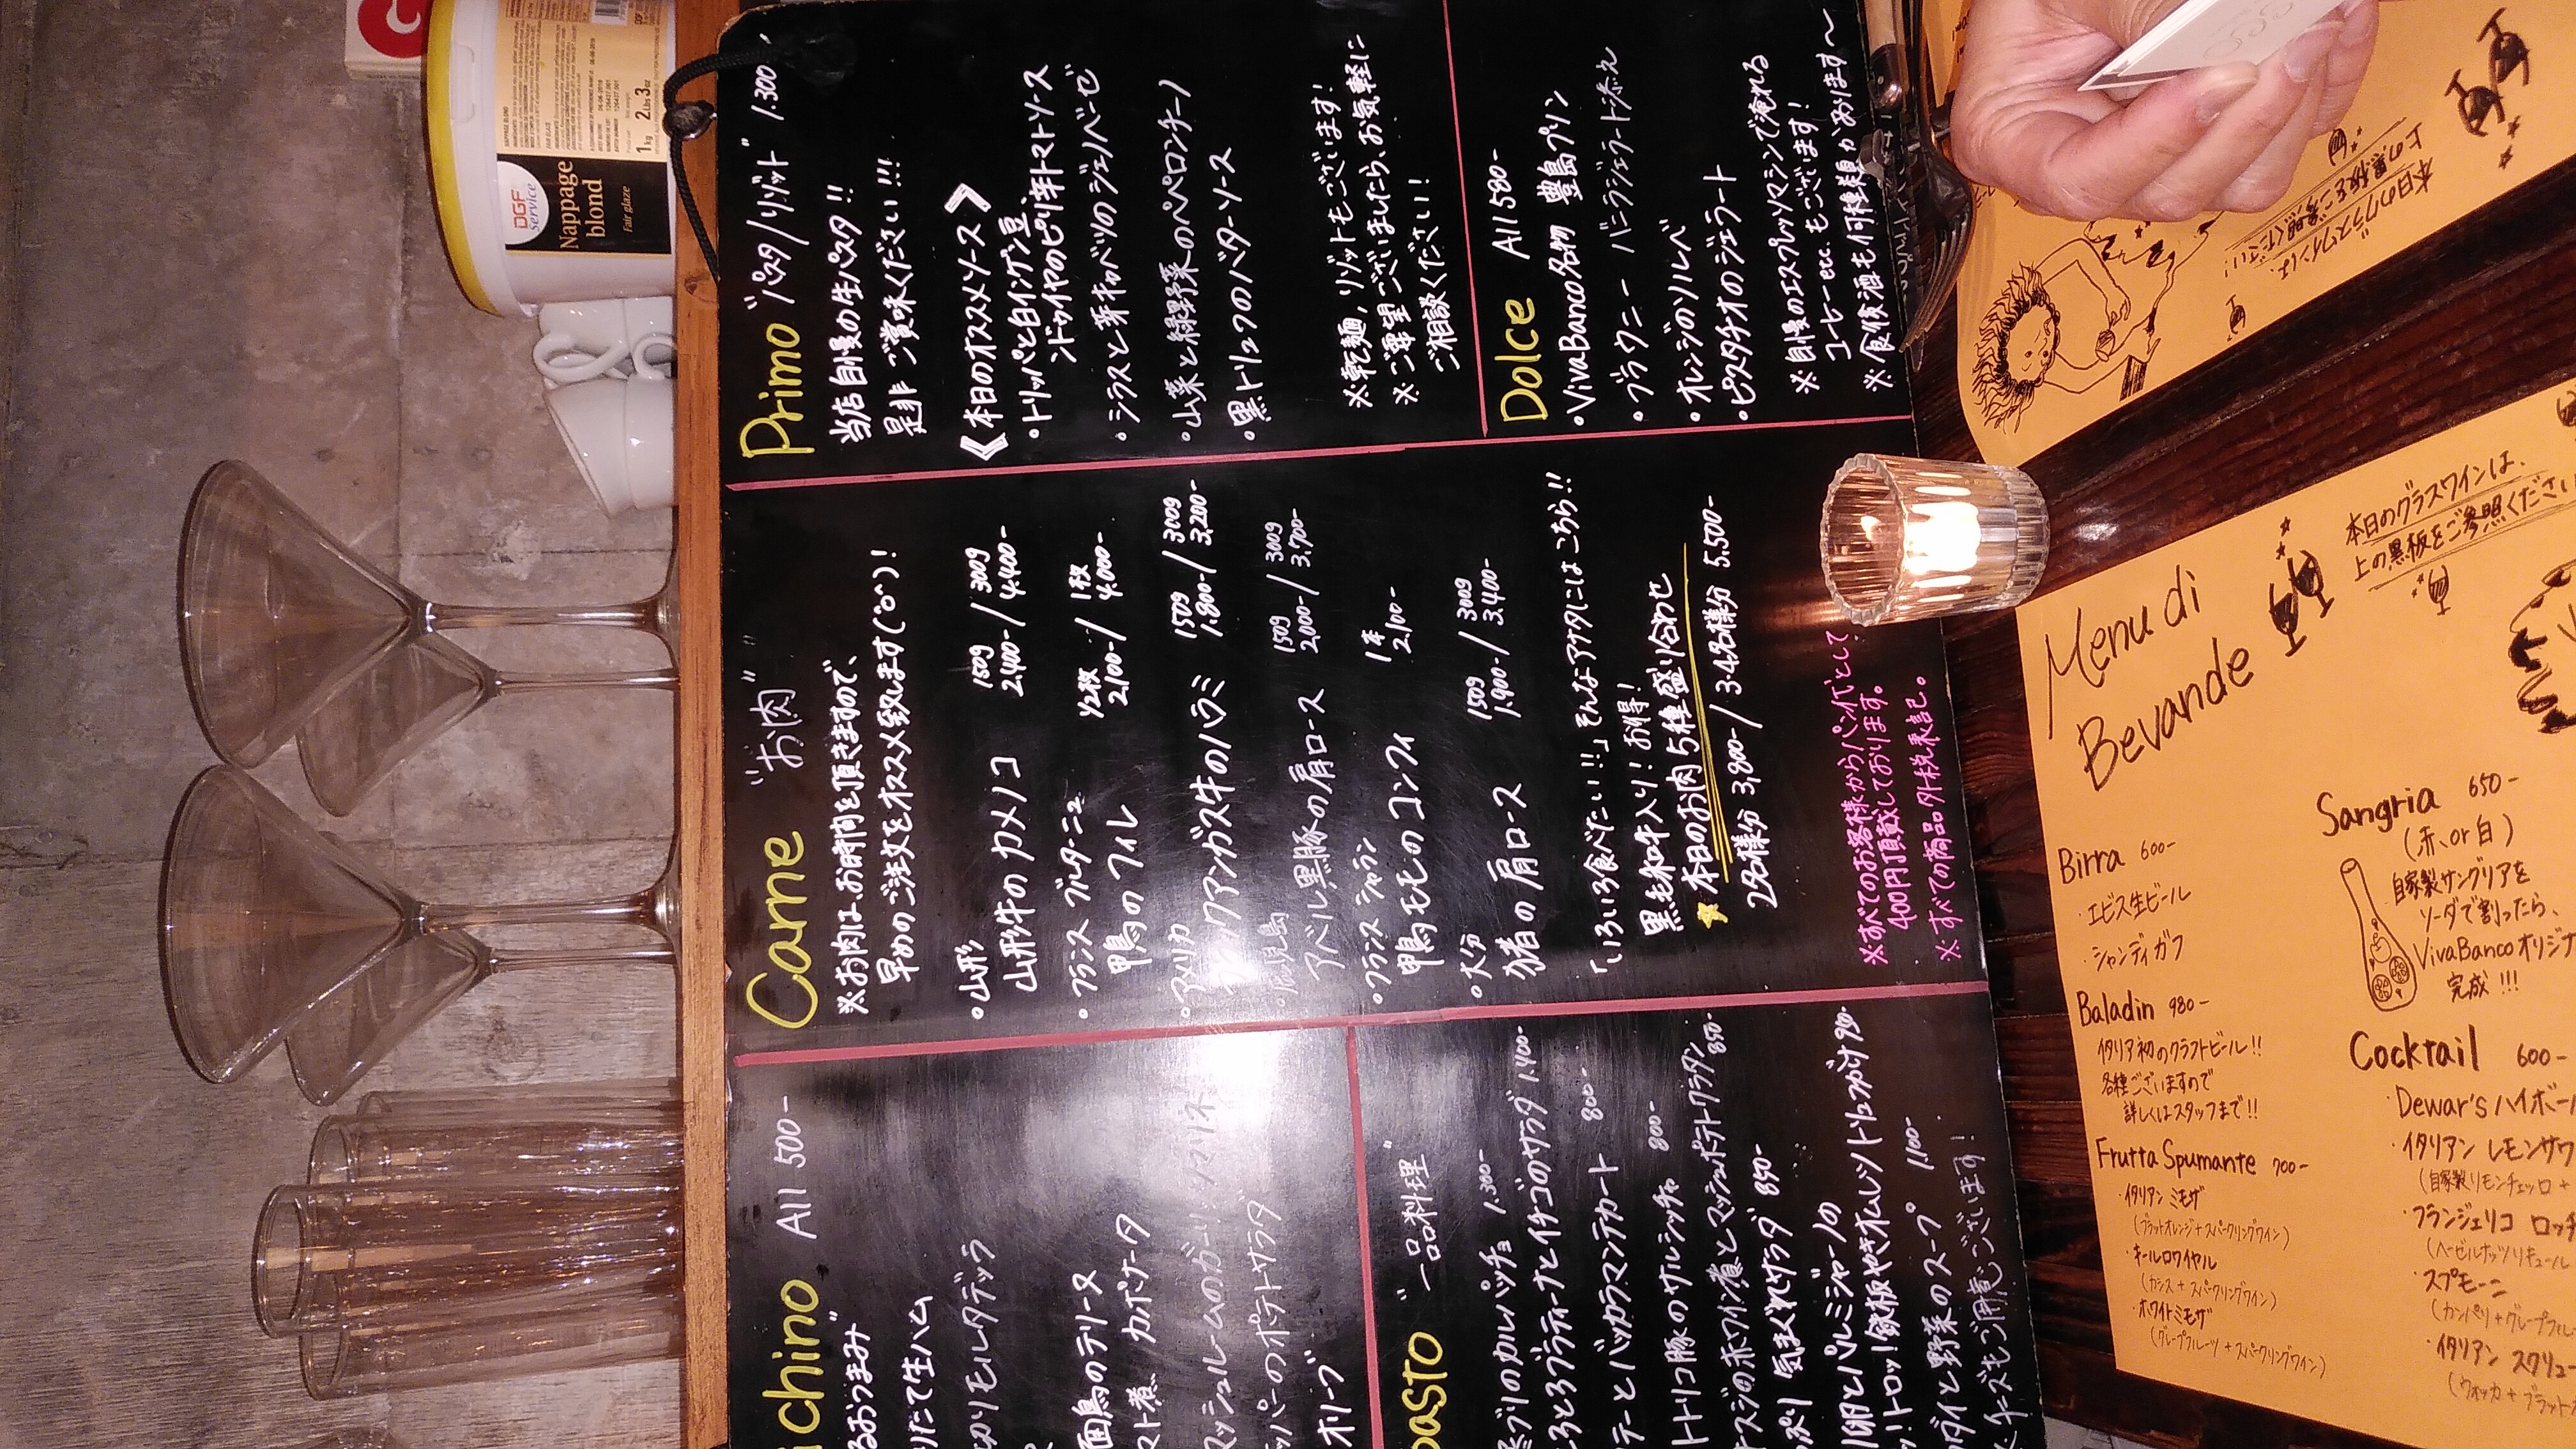 DGF
Service
Nappage
blond
Fair glaze
1 kg
2 Lbs 3 oz
chino All 500-
るおつまみ"
りたて生ハム
のりモルタデッラ
面鳥のテリーヌ
マト煮 カポナータ
マッシュルームのガーリックマリネ
ッパーのポテトサラダ
オリーブ
pasto "一品料理"
ブリのカルパッチョ 1.300-
とろブラティーナとイチゴのサラダ 1.400-
テーとバッカラマンテカート 800-
トトリコ豚のサルシッチャ 800-
オスジの赤ワイン煮とマッシュポテトグラタン 850-
っぷり 気まぐれサラダ 850-
卵とパルミジャーノの
ッ!トロッ!鉄板やきオムレツ トリュフがけ
ダイと野菜のスープ 1.100-
チーズもご用意ございます!
Carne "お肉"
※お肉は、お時間を頂きますので、
早めのご注文をオススメ致します(^o^)!
・山形
山形牛のカメノコ 150g 2.400-/300g 4.400-
・フランス ブルターニュ
鴨のフィレ 1/2枚 2.100-/1枚 4.000-
・アメリカ
ブラックアンガス牛のハラミ 150g 1.800-/300g 3.200-
・鹿児島
アベル黒豚の肩ロース 150g 2.000-/300g 3.700-
・フランス シャラン
鴨モモのコンフィ 1本 2.100-
・大分
猪の肩ロース 150g 1.900-/300g 3.400-
「いろいろ食べたい!!」そんなアナタにはこちら!!
黒毛和牛入り!お得!
★本日のお肉5種盛り合わせ
2名様分 3,800-/3・4名様分 5.500-
※すべてのお客様からパン代として
400円頂戴しております。
※すべての商品外税表記。
Primo "パスタ/リゾット" 1.300,
当店自慢の生パスタ!!
是非ご賞味ください!!!
《本日のオススメソース》
・トリッパと白インゲン豆、
ンドゥイヤのピリ辛トマトソース
・シラスと芽キャベツのジェノベーゼ
・山菜と緑野菜のペペロンチーノ
・黒トリュフのバターソース
※乾麺,リゾットもございます!
※ご要望ございましたら、お気軽に
ご相談ください!
Dolce All 580-
・VivaBanco名物 豊島プリン
・ブラウニー バニラジェラート添え
・オレンジのソルベ
・ピスタチオのジェラート
※自慢のエスプレッソマシンで淹れる
コーヒーecc.もございます!
※食後酒も何種類かあります〜
Menu di
Bevande
本日のグラスワインは、
上の黒板をご参照ください
Birra 600-
・エビス生ビール
・シャンディガフ
Baladin 980-
イタリア初のクラフトビール!!
各種ございますので
詳しくはスタッフまで!!
Frutta Spumante 700-
・イタリアン ミモザ
(ブラッドオレンジ+スパークリングワイン)
・キールロワイヤル
(カシス+スパークリングワイン)
・ホワイトミモザ
(グレープフルーツ+スパークリングワイン)
Sangria 650-
(赤、or 白)
自家製サングリアを
ソーダで割ったら、
VivaBancoオリジナ
完成!!!
Cocktail 600-
・Dewar'sハイボール
・イタリアン レモンサワ
(自家製リモンチェッロ+
・フランジェリコ ロッ
(ヘーゼルナッツリキュール
・スプモーニ
(カンパリ+グレープフルー
・イタリアン スクリュー
(ウォッカ+ブラッド
本日のグラスワインは、
上の黒板をご参照ください!